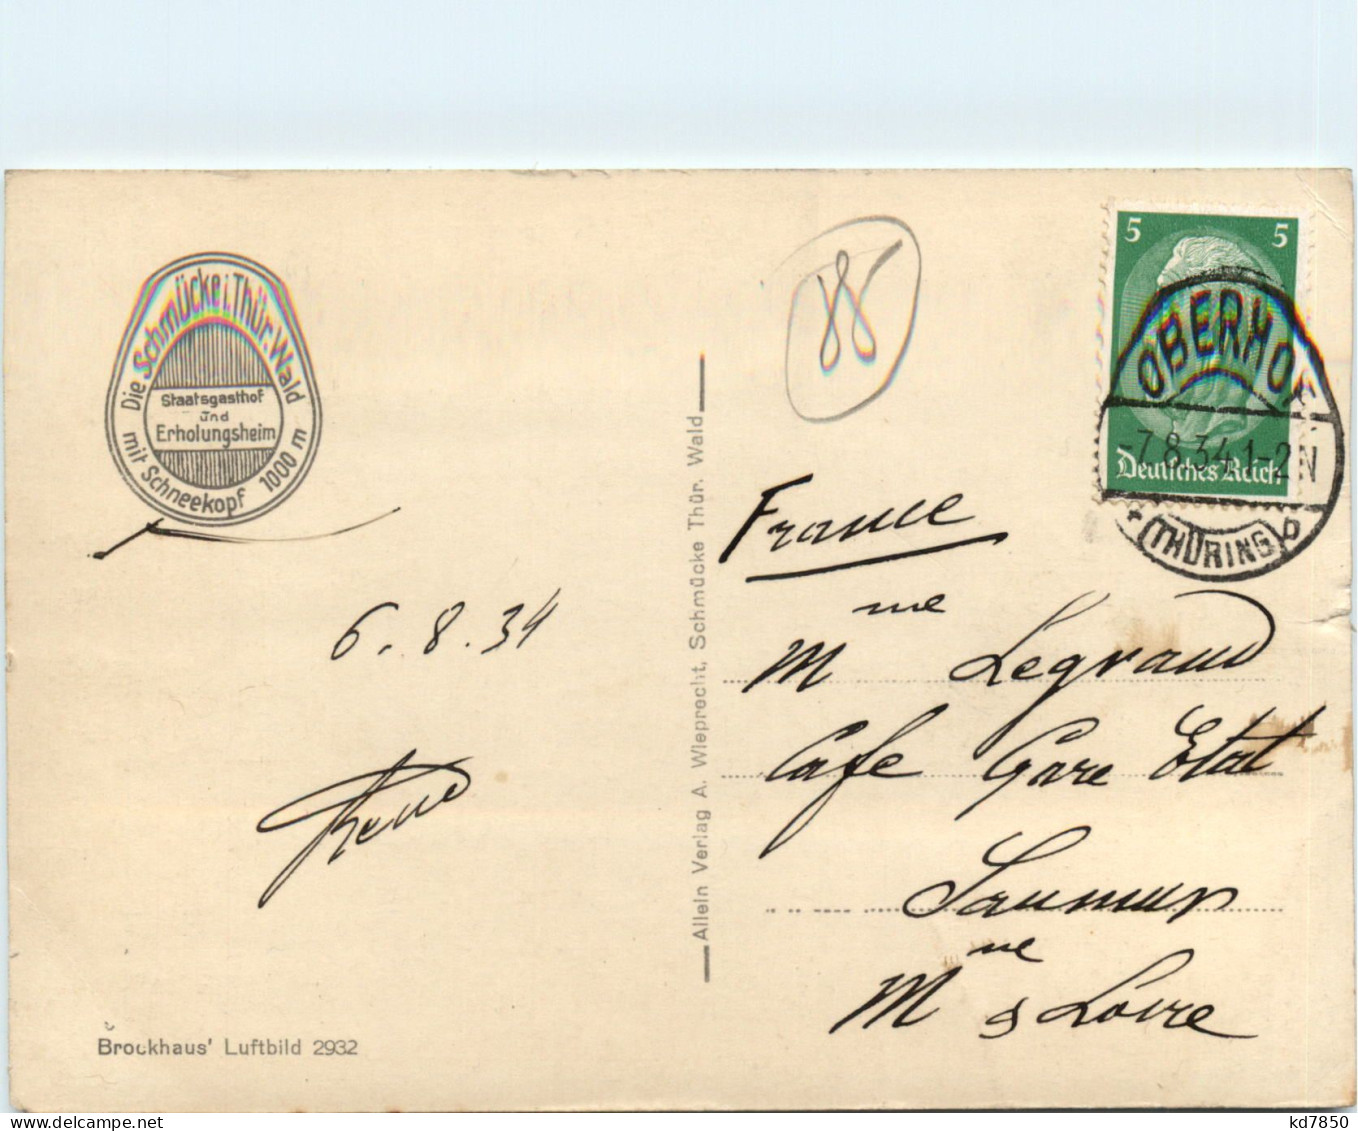 Die Schmücke i. Thür. Wald
Staatsgasthof
und
Erholungsheim
mit Schneekopf 1000 m
6. 8. 34
René
Brockhaus' Luftbild 2932
Allein Verlag A. Wieprecht, Schmücke Thür. Wald
88
5 5
Deutsches Reich
OBERHOF
-7.8.34.1-2N
* (THÜRING) b
France
Mme Legrand
Cafe Gare Etat
Saumur
Mne & Loire
Delcampe.net
kd7850